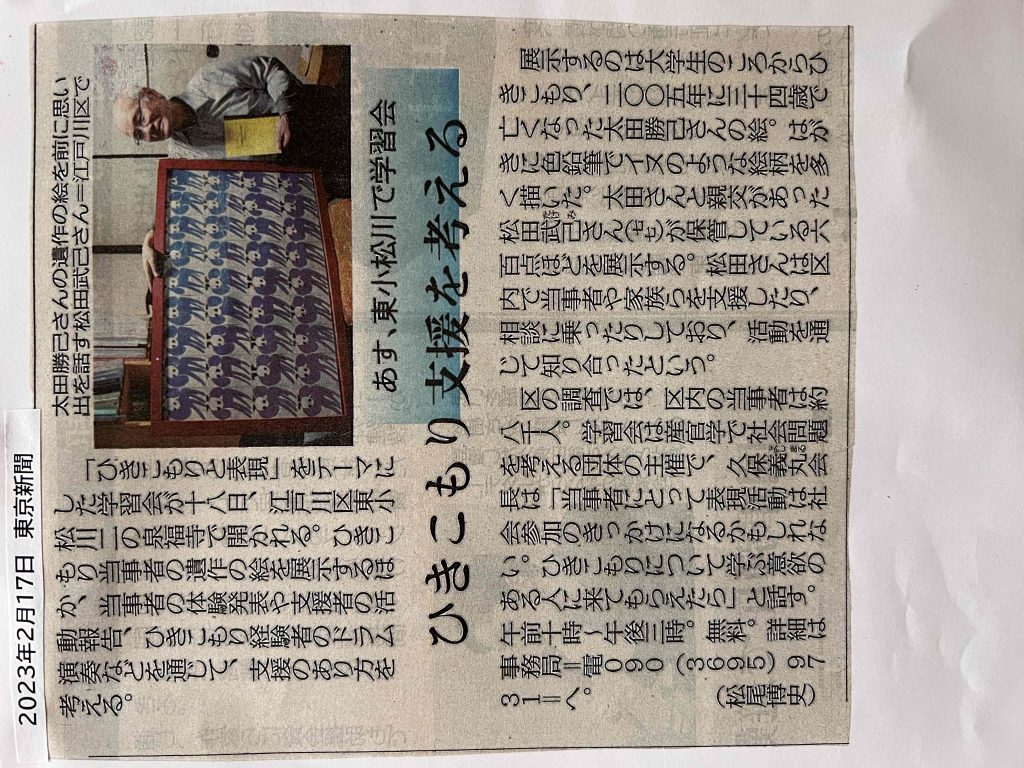 2023年2月17日 東京新聞
太田勝己さんの遺作の絵を前に思い
出を話す松田武己さん＝江戸川区で
あす、東小松川で学習会
ひきこもり支援を考える
「ひきこもりと表現」をテーマに
した学習会が十八日、江戸川区東小
松川二の泉福寺で開かれる。ひきこ
もり当事者の遺作の絵を展示するほ
か、当事者の体験発表や支援者の活
動報告、ひきこもり経験者のドラム
演奏などを通じて、支援のあり方を
考える。
展示するのは大学生のころからひ
きこもり、二〇〇五年に三十四歳で
亡くなった太田勝己さんの絵。はが
きに色鉛筆でイヌのような絵柄を多
く描いた。太田さんと親交があった
松田武己さんが保管している六
百点ほどを展示する。松田さんは区
内で当事者や家族らを支援したり、
相談に乗ったりしており、活動を通
じて知り合ったという。
区の調査では、区内の当事者は約
八千人。学習会は産官学で社会問題
を考える団体の主催で、久保義丸会
長は「当事者にとって表現活動は社
会参加のきっかけになるかもしれな
い。ひきこもりについて学ぶ意欲の
ある人に来てもらえたら」と話す。
午前十時〜午後三時。無料。詳細は
事務局＝電090（3695）97
31＝へ。
（松尾博史）